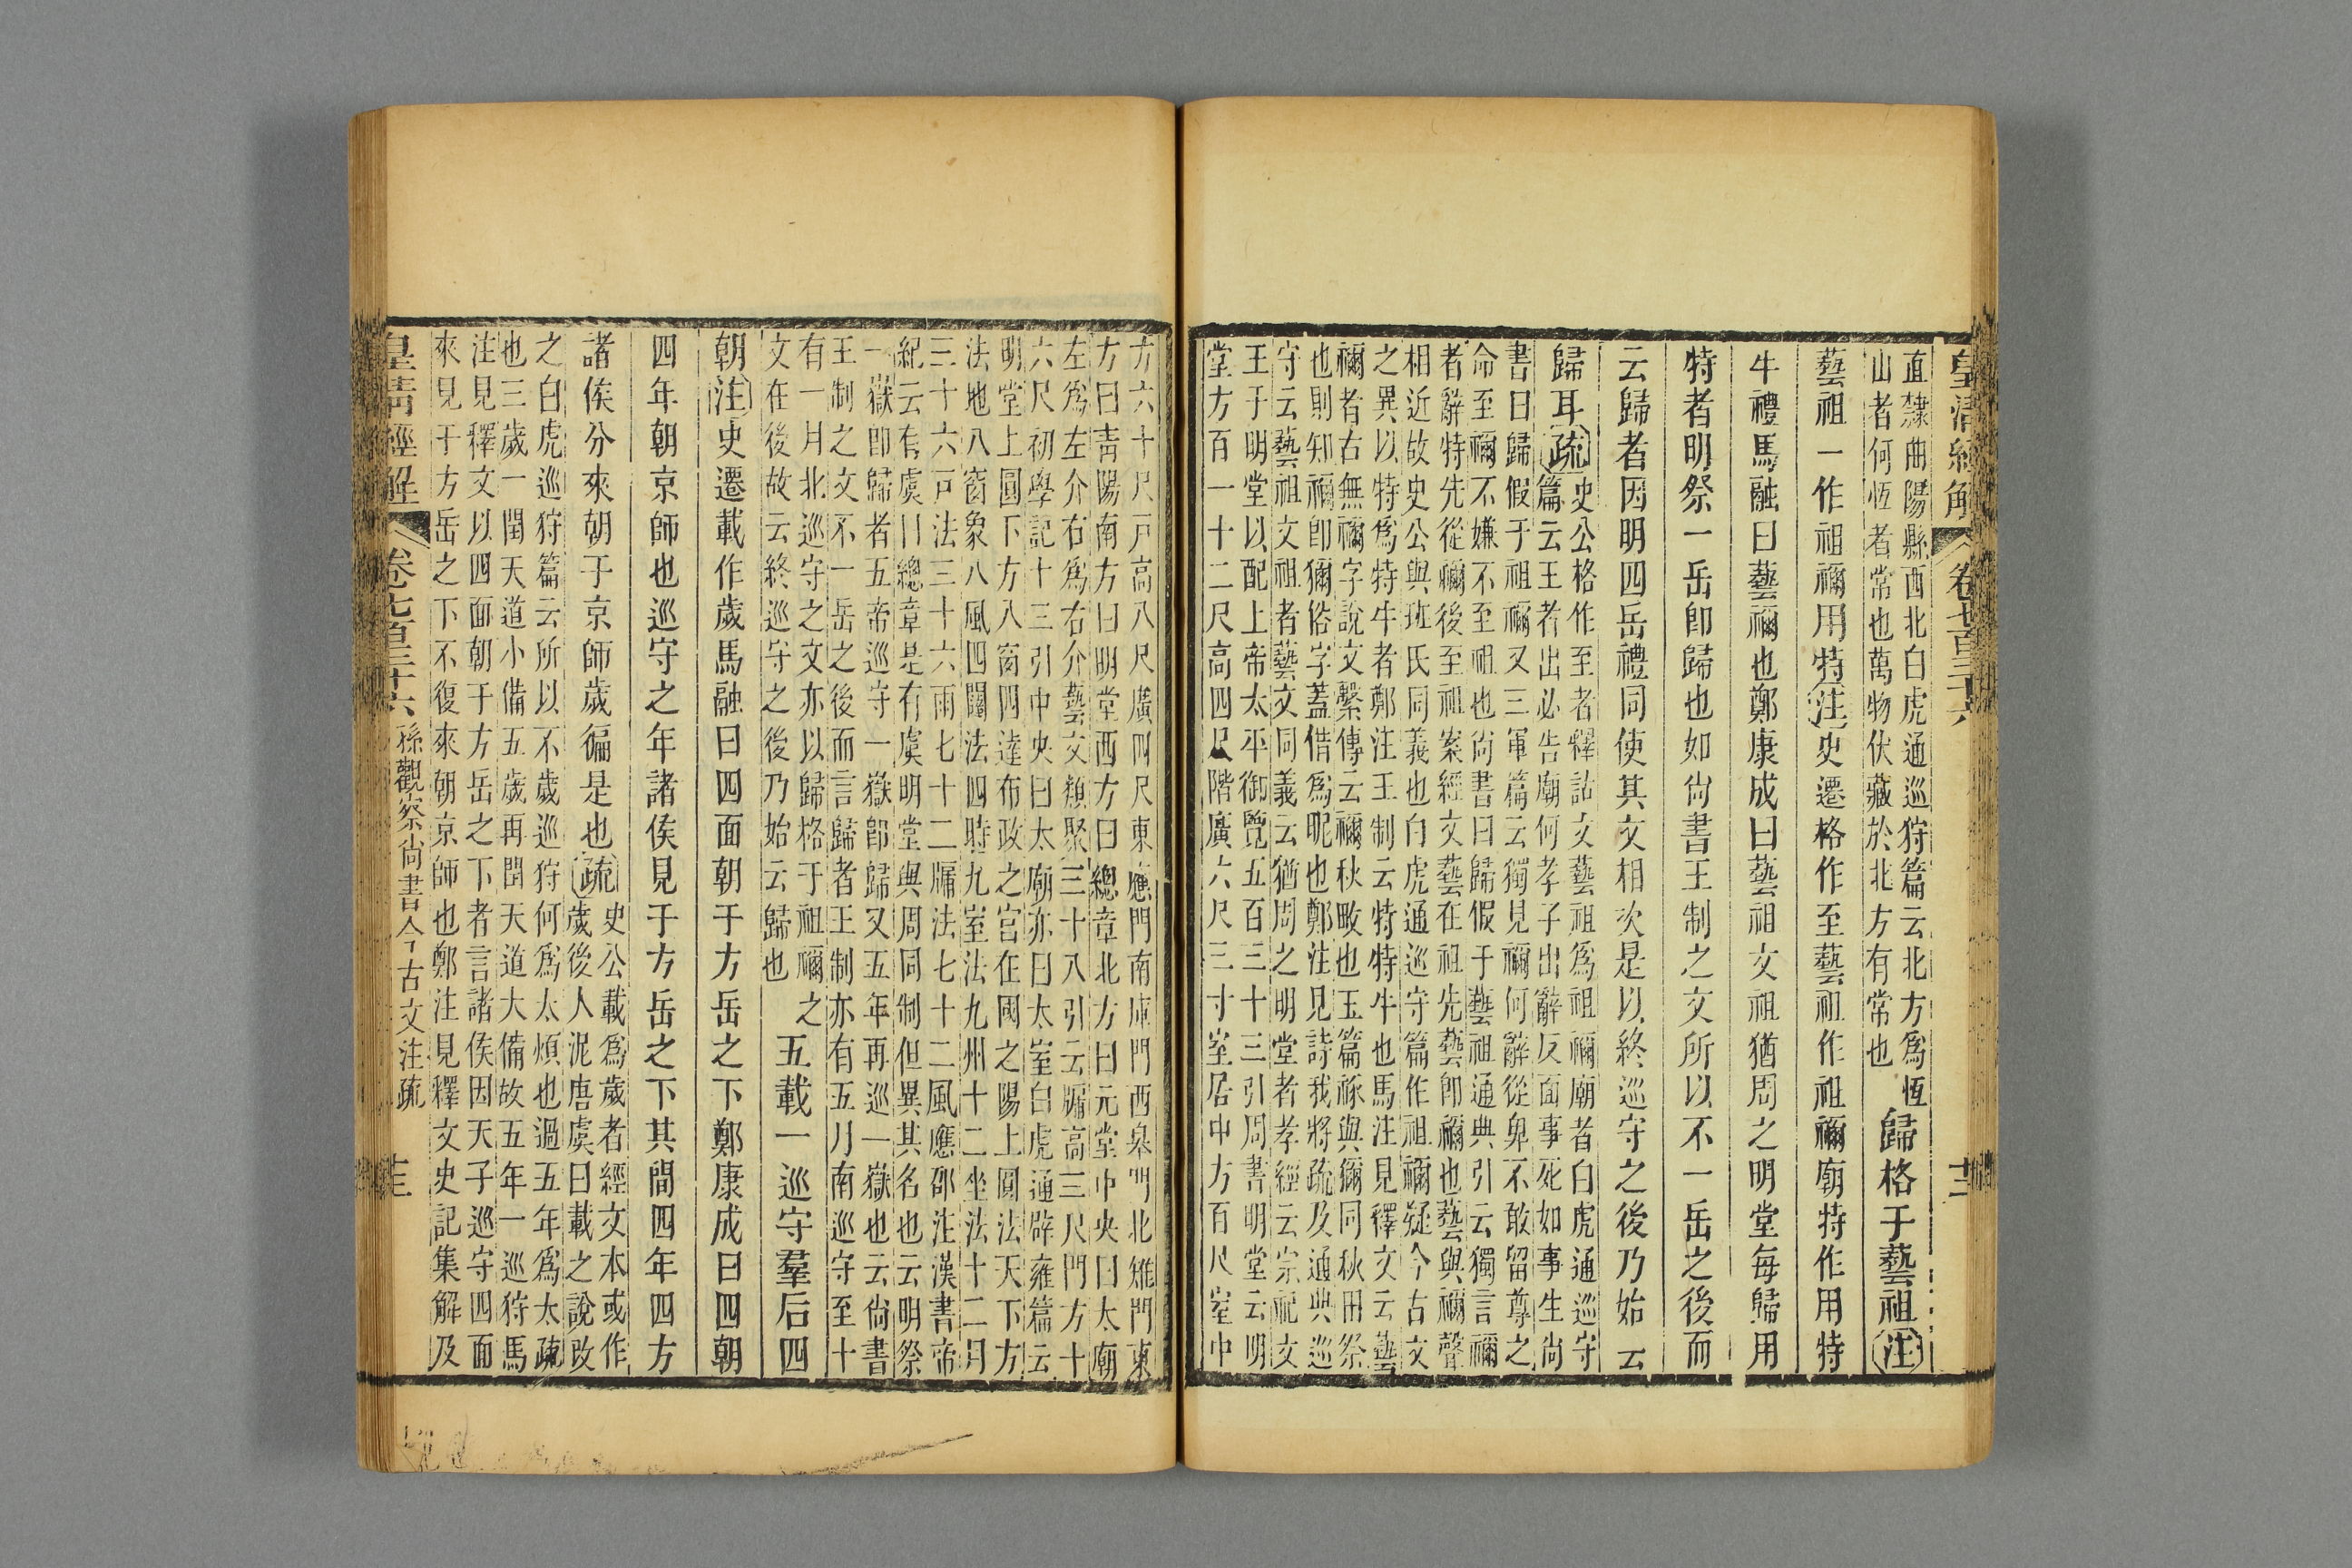 皇清經解 卷七百三十六 十二
直隸曲陽縣西北白虎通巡狩篇云北方爲恆
山者何恆者常也萬物伏藏於北方有常也
歸格于藝祖注
藝祖一作祖禰用特注史遷格作至藝祖作祖禰廟特作用特
牛禮馬融曰藝禰也鄭康成曰藝祖文祖猶周之明堂每歸用
特者明祭一岳卽歸也如尙書王制之文所以不一岳之後而
云歸者因明四岳禮同使其文相次是以終巡守之後乃始云
歸耳疏
史公格作至者釋詁文藝祖爲祖禰廟者白虎通巡守
篇云王者出必告廟何孝子出辭反面事死如事生尙
書曰歸假于祖禰又三軍篇云獨見禰何辭從卑不敢留尊之
命至禰不嫌不至祖也尙書曰歸假于藝祖通典引云獨言禰
者辭特先從禰後至祖案經文藝在祖先藝卽禰也藝與禰聲
相近故史公與班氏同義也白虎通巡守篇作祖禰疑今古文
之異以特爲特牛者鄭注王制云特特牛也馬注見釋文云藝
禰者古無禰字說文繫傳云禰秋畋也玉篇祿與獮同秋田祭
也則知禰卽獮俗字蓋借爲昵也鄭注見詩我將疏及通典巡
守云藝祖文祖者藝文同義云猶周之明堂者孝經云宗祀文
王于明堂以配上帝太平御覽五百三十三引周書明堂云明
堂方百一十二尺高四尺階廣六尺三寸室居中方百尺室中
方六十尺戶高八尺廣四尺東應門南庫門西皋門北雉門東
方曰靑陽南方曰明堂西方曰總章北方曰元堂中央曰太廟
左爲左介右爲右介藝文類聚三十八引云牖高三尺門方十
六尺初學記十三引中央曰太廟亦曰太室白虎通辟雍篇云
明堂上圓下方八窗四達布政之宮在國之陽上圓法天下方
法地八窗象八風四闥法四時九室法九州十二坐法十二月
三十六戶法三十六雨七十二牖法七十二風應邵注漢書帝
紀云有虞曰總章是有虞明堂與周同制但異其名也云明祭
一嶽卽歸者五帝巡守一嶽卽歸又五年再巡一嶽也云尙書
王制之文不一岳之後而言歸者王制亦有五月南巡守至十
有一月北巡守之文亦以歸格于祖禰之
文在後故云終巡守之後乃始云歸也
五載一巡守羣后四
朝注史遷載作歲馬融曰四面朝于方岳之下鄭康成曰四朝
四年朝京師也巡守之年諸侯見于方岳之下其閒四年四方
諸侯分來朝于京師歲徧是也疏
史公載爲歲者經文本或作
歲後人泥唐虞曰載之說改
之白虎巡狩篇云所以不歲巡狩何爲太煩也過五年爲太疏
也三歲一閏天道小備五歲再閏天道大備故五年一巡狩馬
注見釋文以四面朝于方岳之下者言諸侯因天子巡守四面
來見于方岳之下不復來朝京師也鄭注見釋文史記集解及
皇淸經解 卷七百三十六 孫觀察尙書今古文注疏 十三